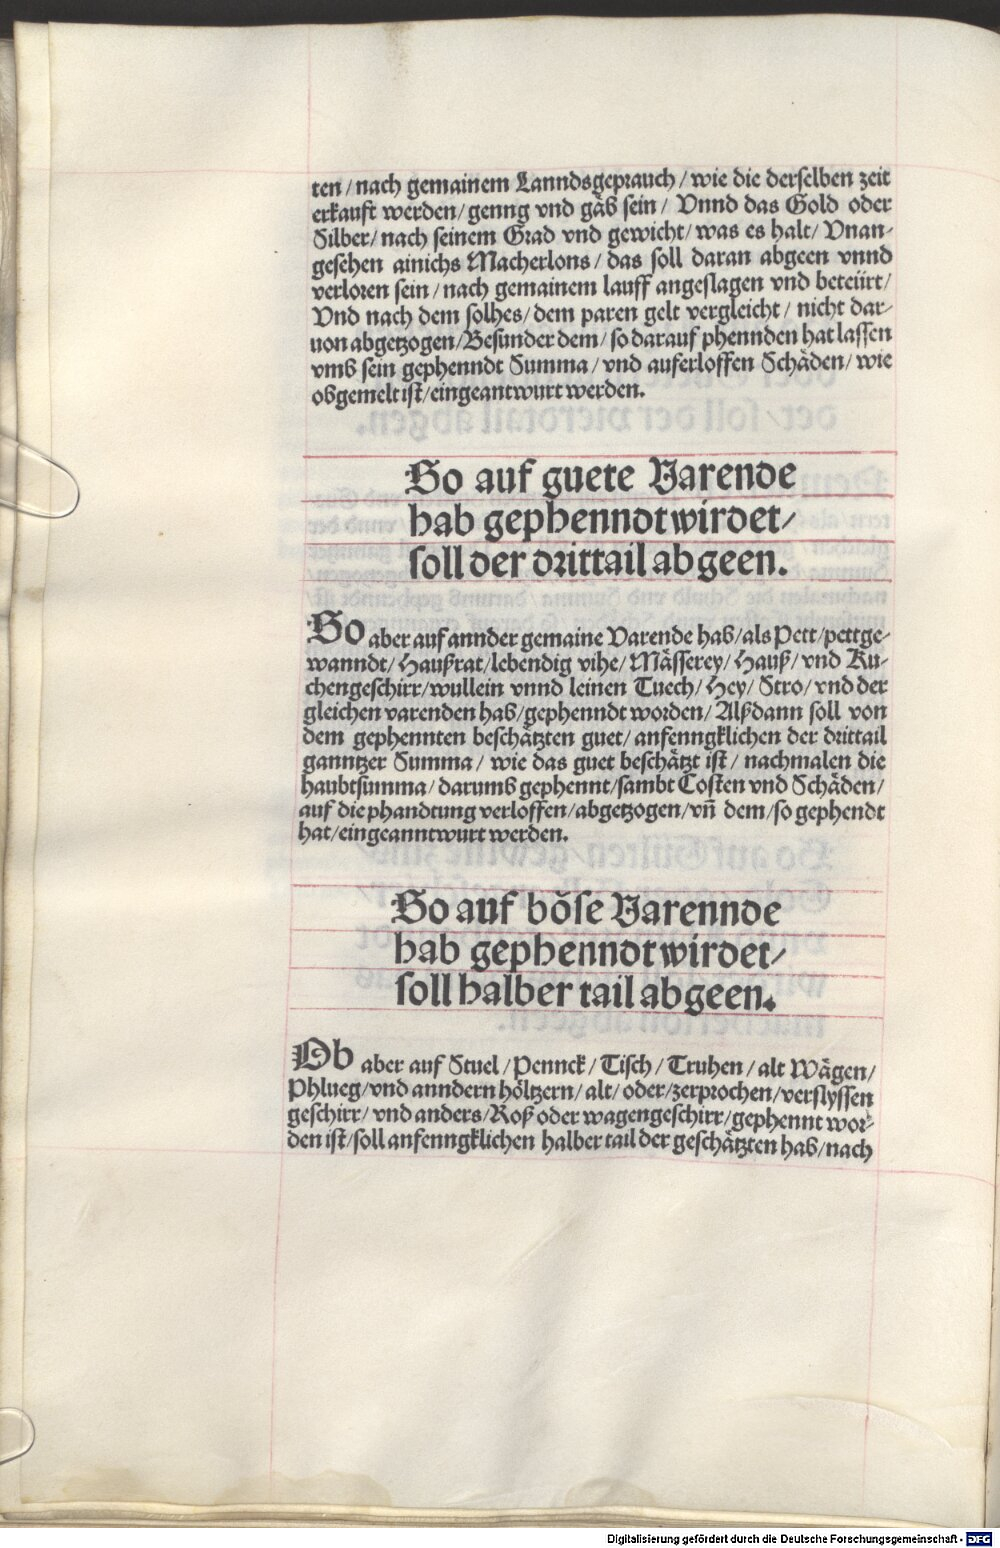 ten / nach gemainem Lanndsgeprauch / wie die derselben zeit
erkauft werden / genng vnd gäb sein / Vnnd das Gold oder
Silber / nach seinem Grad vnd gewicht / was es halt / Vnan-
gesehen ainichs Macherlons / das soll daran abgeen vnnd
verloren sein / nach gemainem lauff angeslagen vnd beteürt /
Vnd nach dem solhes / dem paren gelt vergleicht / nicht dar-
uon abgetzogen / Besunder dem / so darauf phennden hat lassen
vmb sein gephenndt Summa / vnd auferloffen Schäden / wie
obgemelt ist / eingeantwurt werden.
So auf guete Varende
hab gephenndt wirdet /
soll der drittail abgeen.
So aber auf annder gemaine Varende hab / als Pett / pettge-
wanndt / Haußrat / lebendig vihe / Mässerey / Hauß / vnd Ku-
chengeschirr / wullein vnnd leinen Tuech / Hey / Stro / vnd der
gleichen varenden hab / gephenndt worden / Alßdann soll von
dem gephennten beschätzten guet / anfenngklichen der drittail
ganntzer Summa / wie das guet beschätzt ist / nachmalen die
haubtsumma / darumb gephennt / sambt Costen vnd Schäden /
auf die phandtung verloffen / abgetzogen / vn̄ dem / so gephendt
hat / eingeanntwurt werden.
So auf böse Varennde
hab gephenndt wirdet /
soll halber tail abgeen.
Ob aber auf Stuel / Pennck / Tisch / Truhen / alt Wägen /
Phlueg / vnd anndern höltzern / alt / oder / zerprochen / verslyssen
geschirr / vnd anders / Roß oder wagengeschirr / gephennt wor-
den ist / soll anfenngklichen halber tail der geschätzten hab / nach
Digitalisierung gefördert durch die Deutsche Forschungsgemeinschaft - DFG